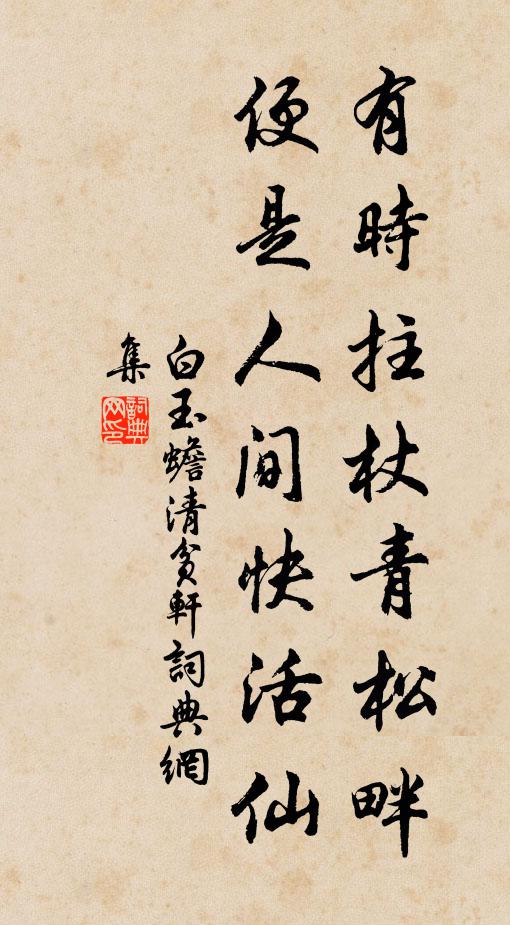 有時拄杖青松畔
便是人間快活仙
白玉蟾清貧軒詞典網
集
詞典
网印